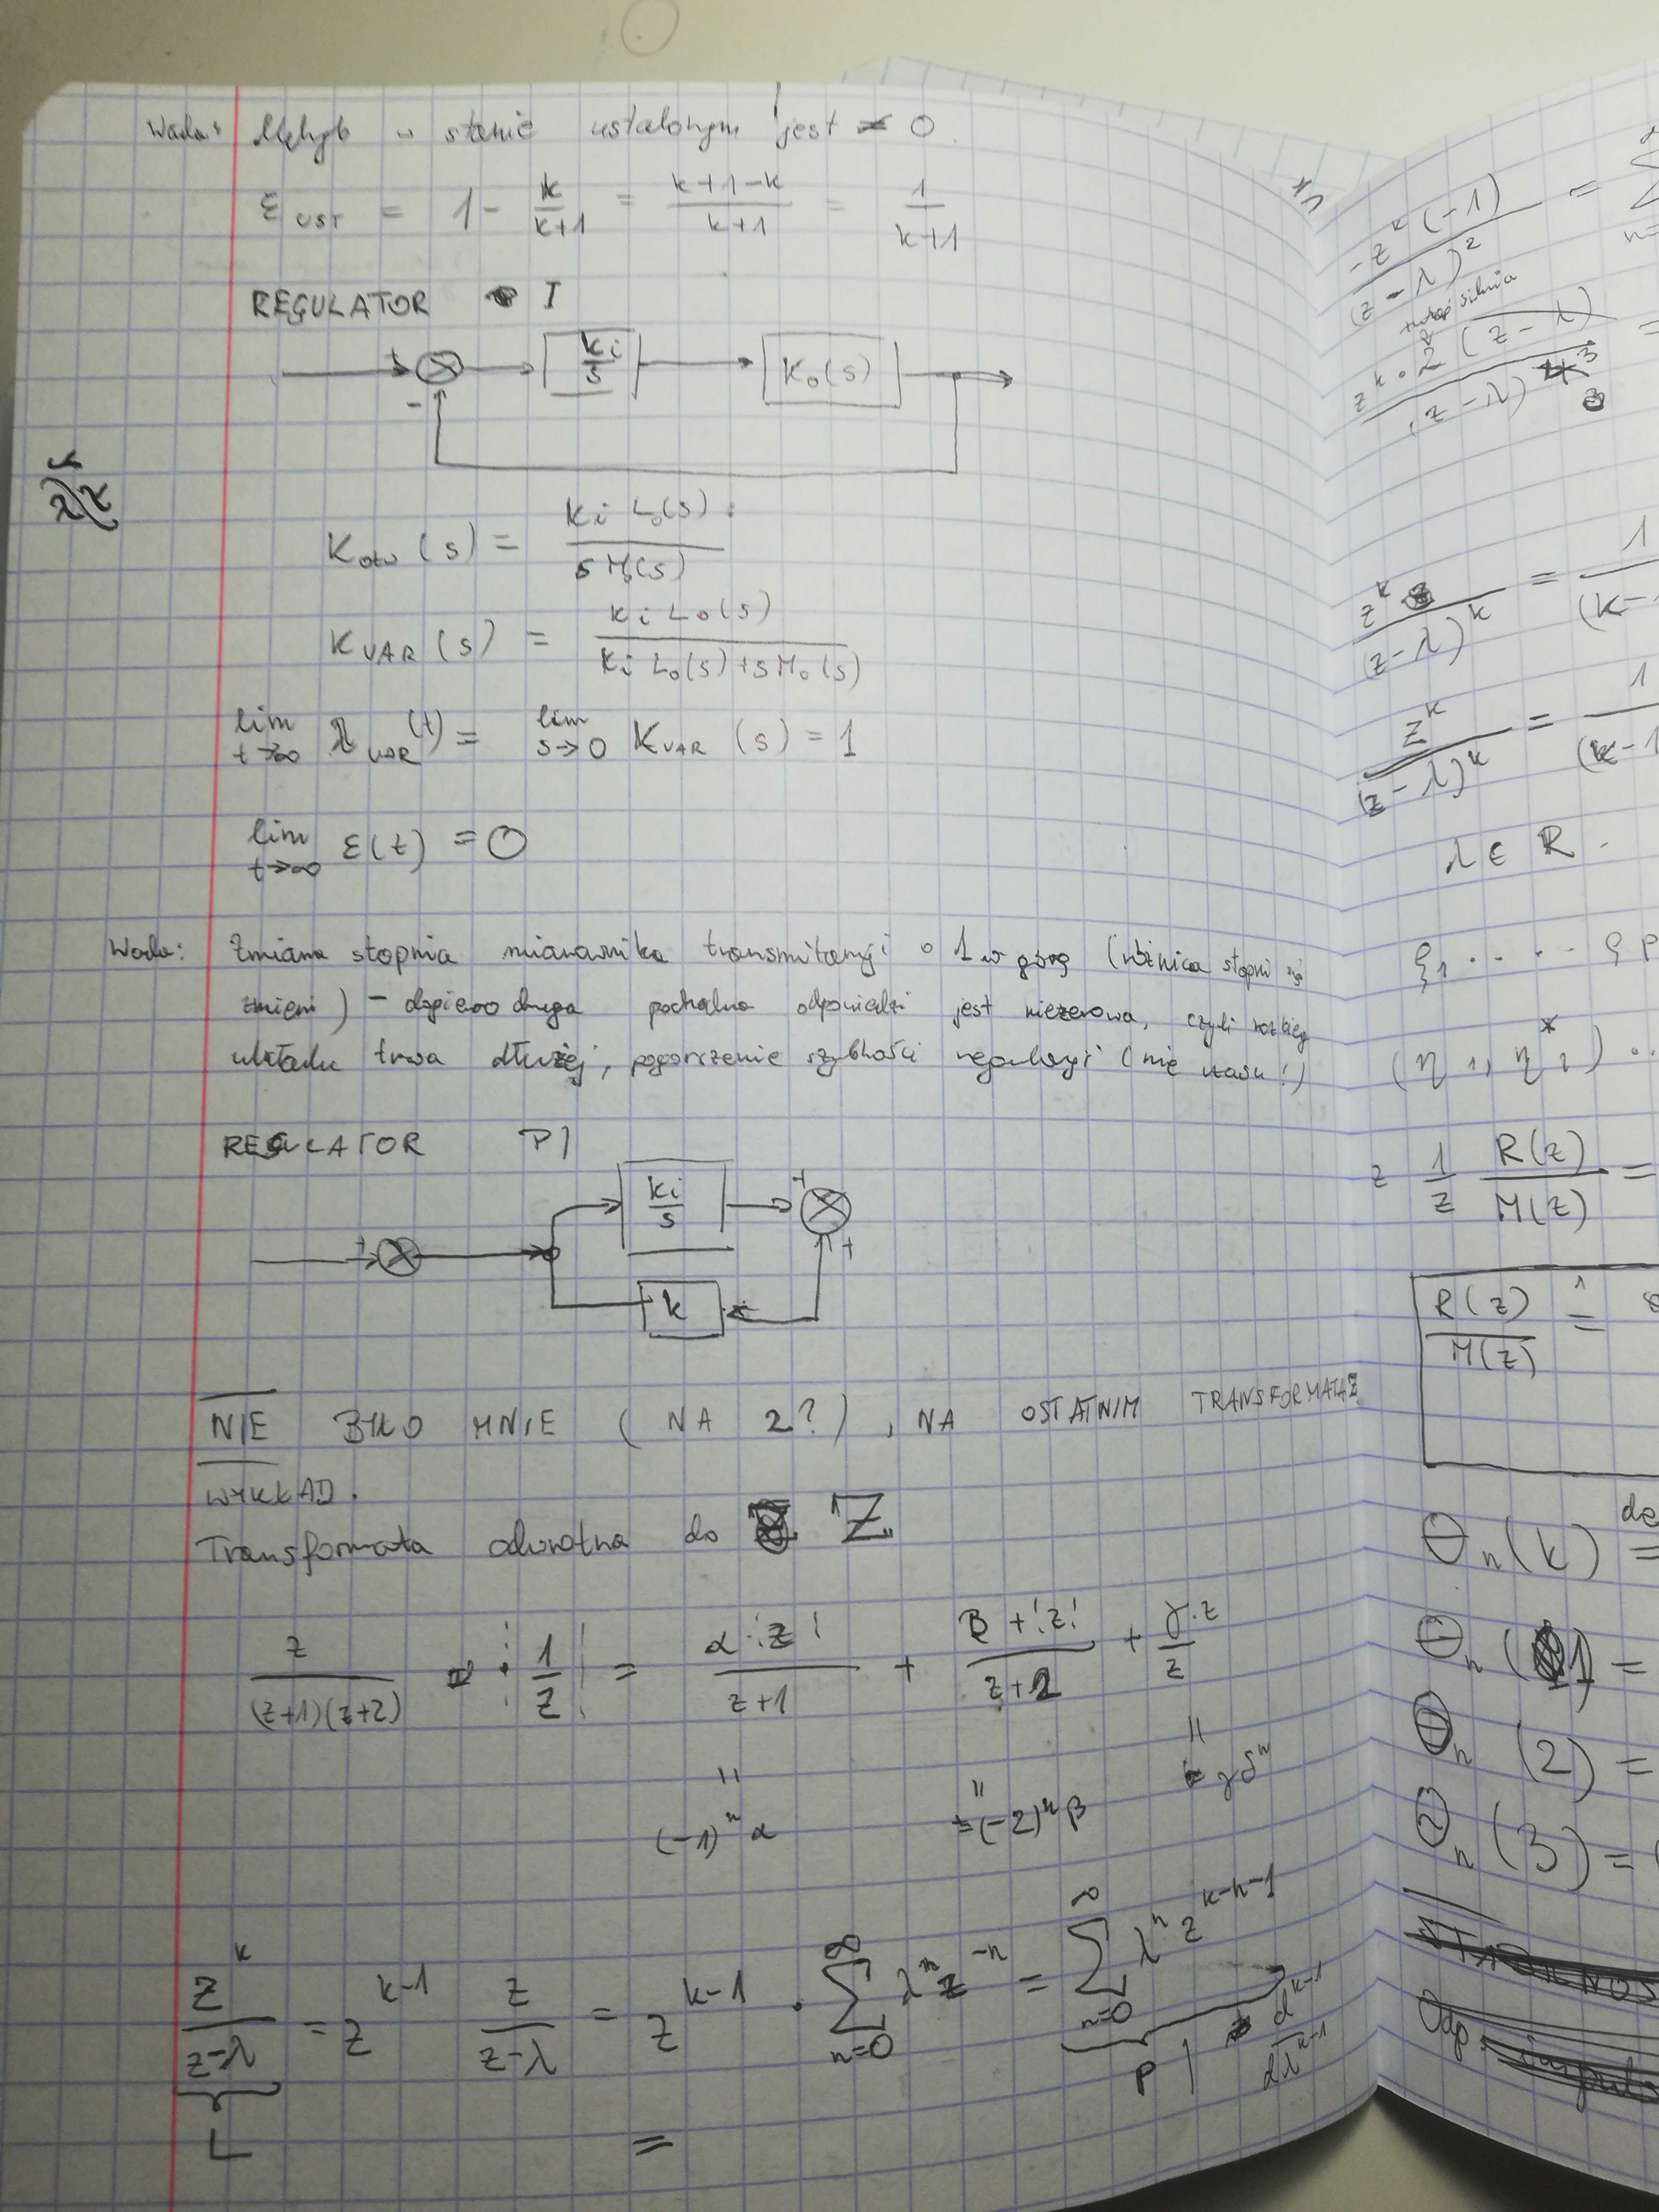 Wada: Uchyb w stanie ustalonym jest ≠ 0.
ε_UST = 1 - k/(k+1) = (k+1-k)/(k+1) = 1/(k+1)
REGULATOR I
+ ki/s K₀(s)
-
K_otw(s) = ki L₀(s) / s M₀(s)
K_UAR(s) = ki L₀(s) / (ki L₀(s) + s M₀(s))
lim t→∞ λ_UAR(t) = lim s→0 K_UAR(s) = 1
lim t→∞ ε(t) = 0
Wada: Zmiana stopnia mianownika transmitancji o 1 w górę (różnica stopni się
zmieni) - dopiero druga pochodna odpowiedzi jest niezerowa, czyli rozbieg
układu trwa dłużej, pogorszenie szybkości regulacji (nie czasu!)
REGULATOR PI
+ ki/s +
k +
NIE BYŁO MNIE (NA 2?), NA OSTATNIM TRANSFORMATA Z
WYKŁAD.
Transformata odwrotna do "Z"
z/((z+1)(z+2)) · 1/z = α·z/(z+1) + β+z/(z+2) + γ·z/z
" " "
(-1)ⁿ α =(-2)ⁿ β γδⁿ
z^k/(z-λ) = z^(k-1) z/(z-λ) = z^(k-1) · Σ n=0 ∞ λⁿ z^(-n) = Σ n=0 ∞ λⁿ z^(k-n-1)
L P | d^(k-1)/dλ^(k-1)
=
-z^k(-1)/(z-λ)² = Σ
n=
z^k · 2(z-λ)/(z-λ) 3 =
z^k/(z-λ)^k = 1/(k-
z^k/(z-λ)^k = 1/(k-1
λ ∈ R.
ξ₁ ..... ξ p
(η₁, η₁*) ..
z 1/z R(z)/M(z) =
R(z)/M(z) ≙
Θₙ(k) =
Θₙ(1) =
Θₙ(2) =
Θₙ(3) =
Odp.